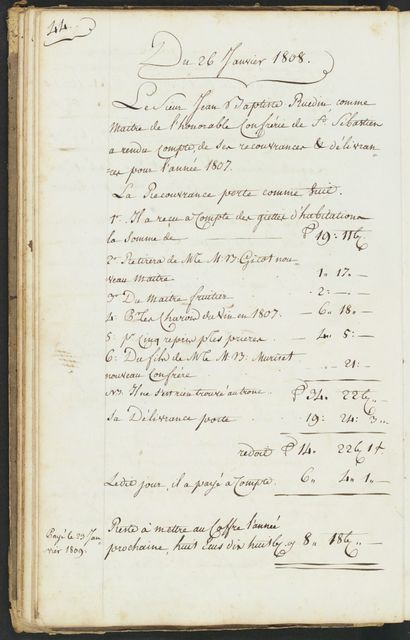 44.
Du 26 Janvier 1808.
Le Sieur Jean Baptiste Ruedin comme
Maitre de l'honorable Confrérie de St Sébastien
a rendu Compte, de ses recouvrances & délivran-
ces pour l'année 1807.
La Recouvrance porte comme suit.
1° Il a reçu a Compte des giettes d'habitation
la somme de 19: 11
2° Retirera de Mr le M. B. Gicot nou-
veau maitre 1 17 —
3° Du Maitre fruitier 2 — —
4: du vin en 1807. — 6 18 —
5: pr Cinq repons p. les prières — 4 5: —
6: Du fils de Mr le M. B. Muriset
nouveau Confrère 21: —
Il ne s'est rien trouvé au tronc 34. 22
Sa Délivrance porte 19: 24: 3
redoit 14. 22 1
Ledit jour, il a payé a Compte 6 4 1 —
Payé le 23 Jan-
vier 1809.
Reste à mettre au Coffre l'année
prochaine, huit Ecus dix huit 8 18 —